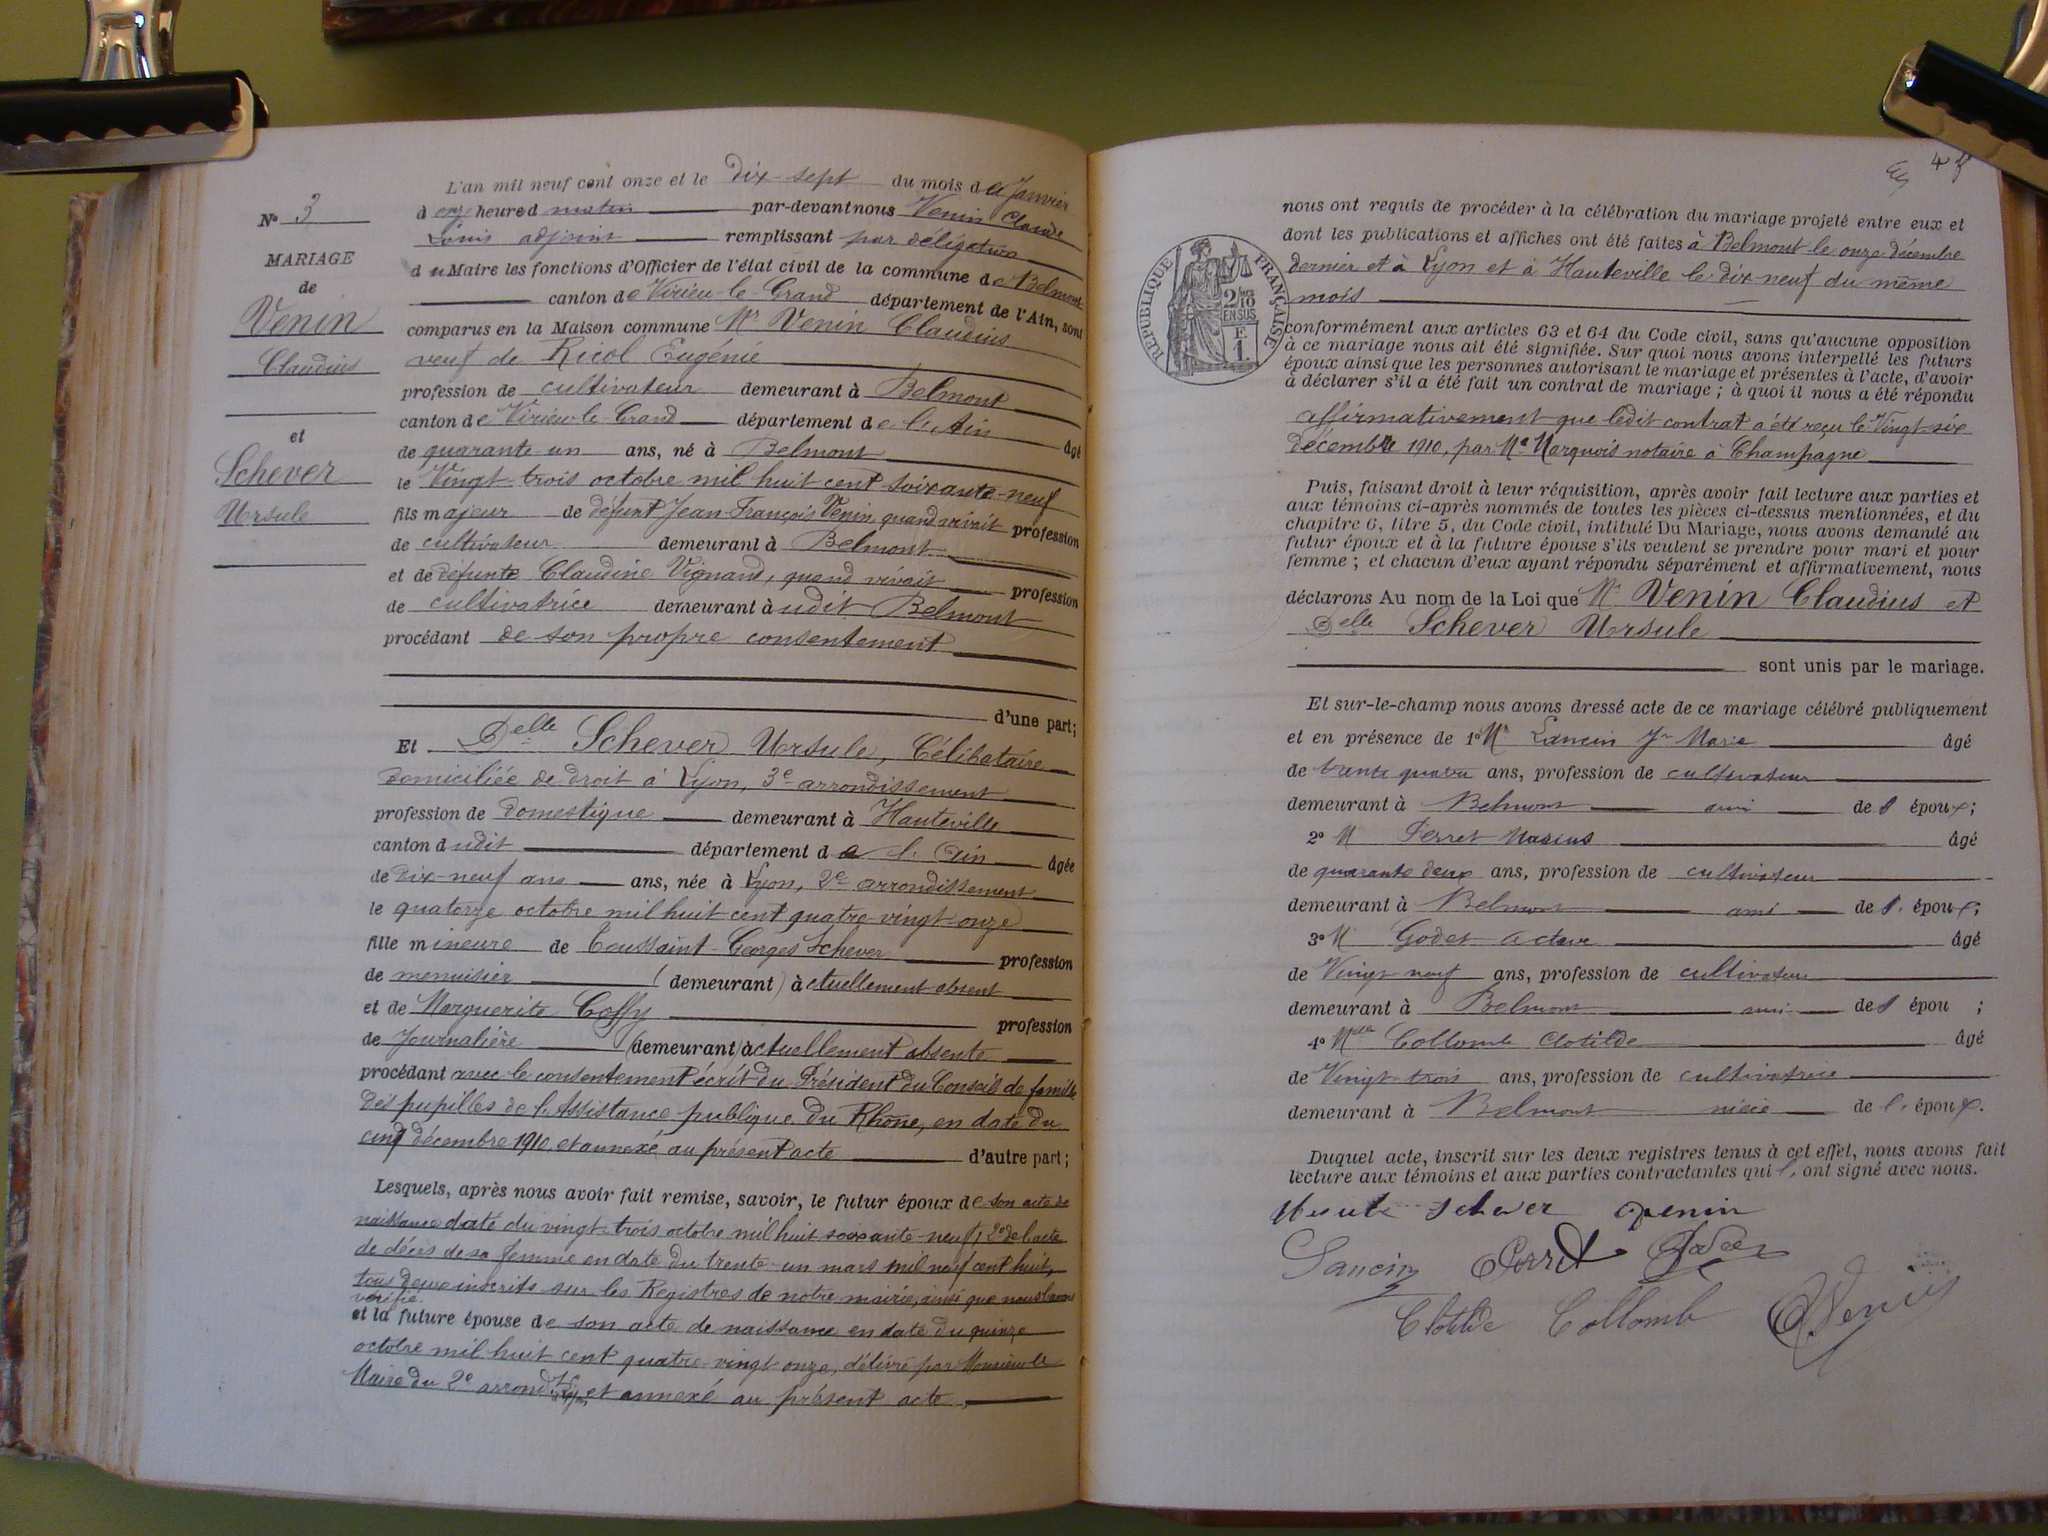 N° 3
MARIAGE
de
Venin
Claudius
et
Schever
Ursule
L'an mil neuf cent onze et le dix-sept du mois de Janvier
à onze heure d matin par-devant nous Venin Claude
Louis adjoint remplissant par délégation
du Maire les fonctions d'Officier de l'état civil de la commune de Belmont
canton de Virieu-le-Grand département de l'Ain, sont
comparus en la Maison commune Mr Venin Claudius
veuf de Ricol Eugénie
profession de cultivateur demeurant à Belmont
canton de Virieu-le-Grand département de l'Ain âgé
de quarante-un ans, né à Belmont
le Vingt-trois octobre mil huit cent soixante-neuf
fils majeur de défunt Jean-François Venin, quand vivait profession
de cultivateur demeurant à Belmont
et de défunte Claudine Vignand, quand vivait profession
de cultivatrice demeurant à udit Belmont
procédant de son propre consentement
d'une part;
Et Delle Schever Ursule, Célibataire
domiciliée de droit à Lyon, 3e arrondissement
profession de domestique demeurant à Hauteville
canton dudit département de l'Ain âgée
de dix-neuf ans ans, née à Lyon, 2e arrondissement
le quatorze octobre mil huit cent quatre-vingt-onze
fille mineure de Toussaint-Georges Schever profession
de menuisier (demeurant) actuellement absent
et de Marguerite Coffy profession
de Journalière (demeurant) actuellement absente
procédant avec le consentement écrit du Président du Conseil de famille
des pupilles de l'Assistance publique du Rhône, en date du
cinq décembre 1910 et annexé au présent acte d'autre part;
Lesquels, après nous avoir fait remise, savoir, le futur époux de son acte de
naissance daté du vingt-trois octobre mil huit soixante-neuf, 2° de l'acte
de décès de sa femme en date du trente-un mars mil neuf cent huit,
tous deux inscrits sur les Registres de notre mairie, ainsi que nous l'avons
vérifié.
et la future épouse de son acte de naissance en date du quinze
octobre mil huit cent quatre-vingt-onze, délivré par Monsieur le
Maire du 2e arrondt et annexé au présent acte.
45
RÉPUBLIQUE FRANÇAISE
2/10
EN SUS
1 F.
nous ont requis de procéder à la célébration du mariage projeté entre eux et
dont les publications et affiches ont été faites à Belmont le onze décembre
dernier et à Lyon et à Hauteville le dix neuf du même
mois
conformément aux articles 63 et 64 du Code civil, sans qu'aucune opposition
à ce mariage nous ait été signifiée. Sur quoi nous avons interpellé les futurs
époux ainsi que les personnes autorisant le mariage et présentes à l'acte, d'avoir
à déclarer s'il a été fait un contrat de mariage; à quoi il nous a été répondu
affirmativement que ledit contrat a été reçu le Vingt-six
décembre 1910, par Me Marquois notaire à Champagne
Puis, faisant droit à leur réquisition, après avoir fait lecture aux parties et
aux témoins ci-après nommés de toutes les pièces ci-dessus mentionnées, et du
chapitre 6, titre 5, du Code civil, intitulé Du Mariage, nous avons demandé au
futur époux et à la future épouse s'ils veulent se prendre pour mari et pour
femme; et chacun d'eux ayant répondu séparément et affirmativement, nous
déclarons Au nom de la Loi que Mr Venin Claudius et
Delle Schever Ursule
sont unis par le mariage.
Et sur-le-champ nous avons dressé acte de ce mariage célébré publiquement
et en présence de 1° Mr Lancin Jn Marie âgé
de trente quatre ans, profession de cultivateur
demeurant à Belmont ami de l époux;
2° M Ferret Marius âgé
de quarante deux ans, profession de cultivateur
demeurant à Belmont ami de l' époux;
3° M Godet Octave âgé
de Vingt-neuf ans, profession de cultivateur
demeurant à Belmont ami de l épou ;
4° Melle Collomb Clotilde âgé
de Vingt-trois ans, profession de cultivatrice
demeurant à Belmont nièce de l' époux.
Duquel acte, inscrit sur les deux registres tenus à cet effet, nous avons fait
lecture aux témoins et aux parties contractantes qui l'ont signé avec nous.
Ursule Schever Venin
Lancin Ferret Godet
Clotilde Collomb Venin